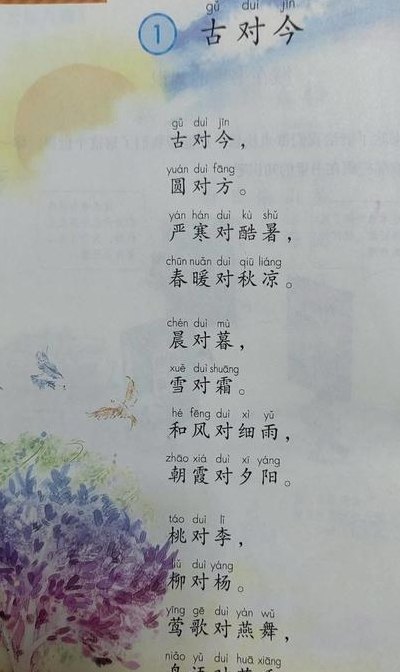 gǔ duì jīn
1 古对今
gǔ duì jīn
古对今，
yuán duì fāng
圆对方。
yán hán duì kù shǔ
严寒对酷暑，
chūn nuǎn duì qiū liáng
春暖对秋凉。
chén duì mù
晨对暮，
xuě duì shuāng
雪对霜。
hé fēng duì xì yǔ
和风对细雨，
zhāo xiá duì xī yáng
朝霞对夕阳。
táo duì lǐ
桃对李，
liǔ duì yáng
柳对杨。
yīng gē duì yàn wǔ
莺歌对燕舞，
niǎo yǔ duì huā xiāng
鸟语对花香